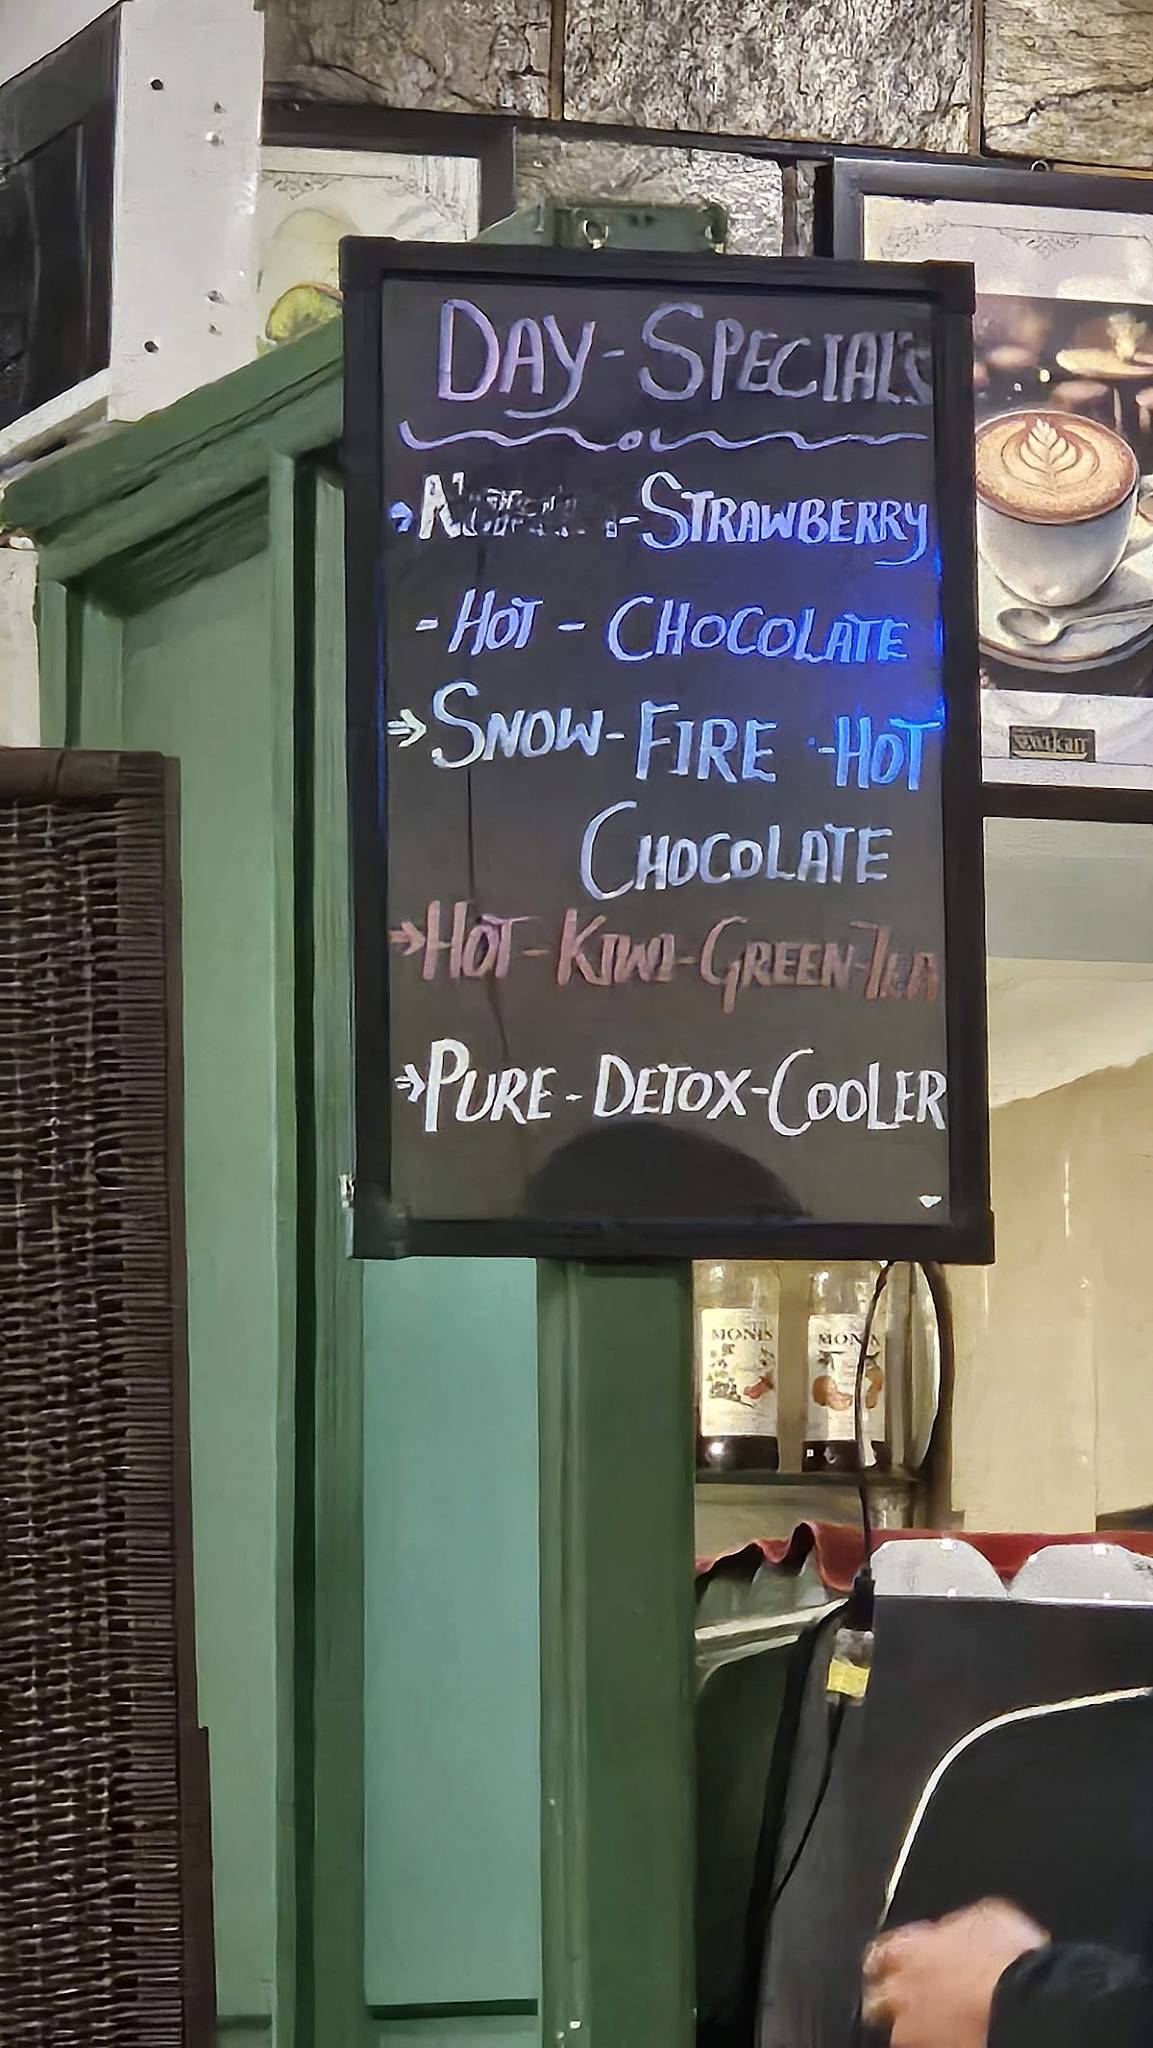 DAY-SPECIALS
-STRAWBERRY
-HOT-CHOCOLATE
→SNOW-FIRE-HOT
CHOCOLATE
→HOT-KIWI-GREEN-TEA
→PURE-DETOX-COOLER
MONIN